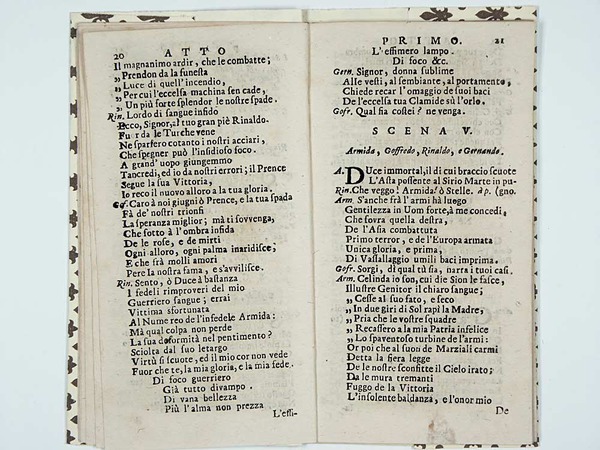 20 ATTO
Il magnanimo ardir, che le combatte;
„ Prendon da la funesta
„ Luce di quell'incendio,
„ Per cui l'eccelsa machina sen cade,
„ Un più forte splendor le nostre spade.
Rin. Lordo di sangue infido
Ecco, Signor, al tuo gran piè Rinaldo.
Fur da le Turche vene
Ne sparsero cotanto i nostri acciari,
Che spegner può l'insidioso foco.
A grand' uopo giungemmo
Tancredi, ed io da nostri errori; il Prence
Segue la sua Vittoria,
Io reco il nuovo alloro a la tua gloria.
Gof. Caro à noi giugni ò Prence, e la tua spada
Fà de' nostri trionfi
La speranza miglior; mà ti sovvenga,
Che sotto à l'ombra infida
De le rose, e de mirti
Ogni alloro, ogni palma inaridisce;
E che frà molli amori
Pere la nostra fama, e s'avvilisce.
Rin. Sento, ò Duce à bastanza
I fedeli rimproveri del mio
Guerriero sangue; errai
Vittima sfortunata
Al Nume reo de l'infedele Armida:
Mà qual colpa non perde
La sua deformità nel pentimento?
Sciolta dal suo letargo
Virtù si scuote, ed il mio cor non vede
Fuor che te, la mia gloria, e la mia fede.
Di foco guerriero
Già tutto divampo.
Di vana bellezza
Più l'alma non prezza
L'effi-
PRIMO. 21
L'effimero lampo.
Di foco &c.
Gern. Signor, donna sublime
Alle vesti, al sembiante, al portamento,
Chiede recar l'omaggio de suoi baci
De l'eccelsa tua Clamide sù l'orlo.
Gofr. Qual sia costei? ne venga.
SCENA V.
Armida, Goffredo, Rinaldo, e Gernando.
A. DUce immortal, il di cui braccio scuote
L'Asta possente al Sirio Marte in pu-
Rin. Che veggo! Armida! ò Stelle. à p. (gno.
Arm. S'anche frà l'armi hà luogo
Gentilezza in Uom forte, à me concedi,
Che sovra quella destra,
De l'Asia combattuta
Primo terror, e de l'Europa armata
Unica gloria, e prima,
Di Vassallaggio umili baci imprima.
Gofr. Sorgi, di qual tù sia, narra i tuoi casi.
Arm. Celinda io son, cui die Sion le fasce,
Illustre Genitor il chiaro sangue;
„ Cesse al suo fato, e seco
„ In due giri di Sol rapì la Madre,
„ Pria che le vostre squadre
„ Recassero a la mia Patria infelice
„ Lo spaventoso turbine de l'armi:
Or poi che al suon de' Marziali carmi
Detta la fiera legge
De le nostre sconfitte il Cielo irato;
Da le mura tremanti
Fuggo de la Vittoria
L'insolente baldanza, e l'onor mio
De